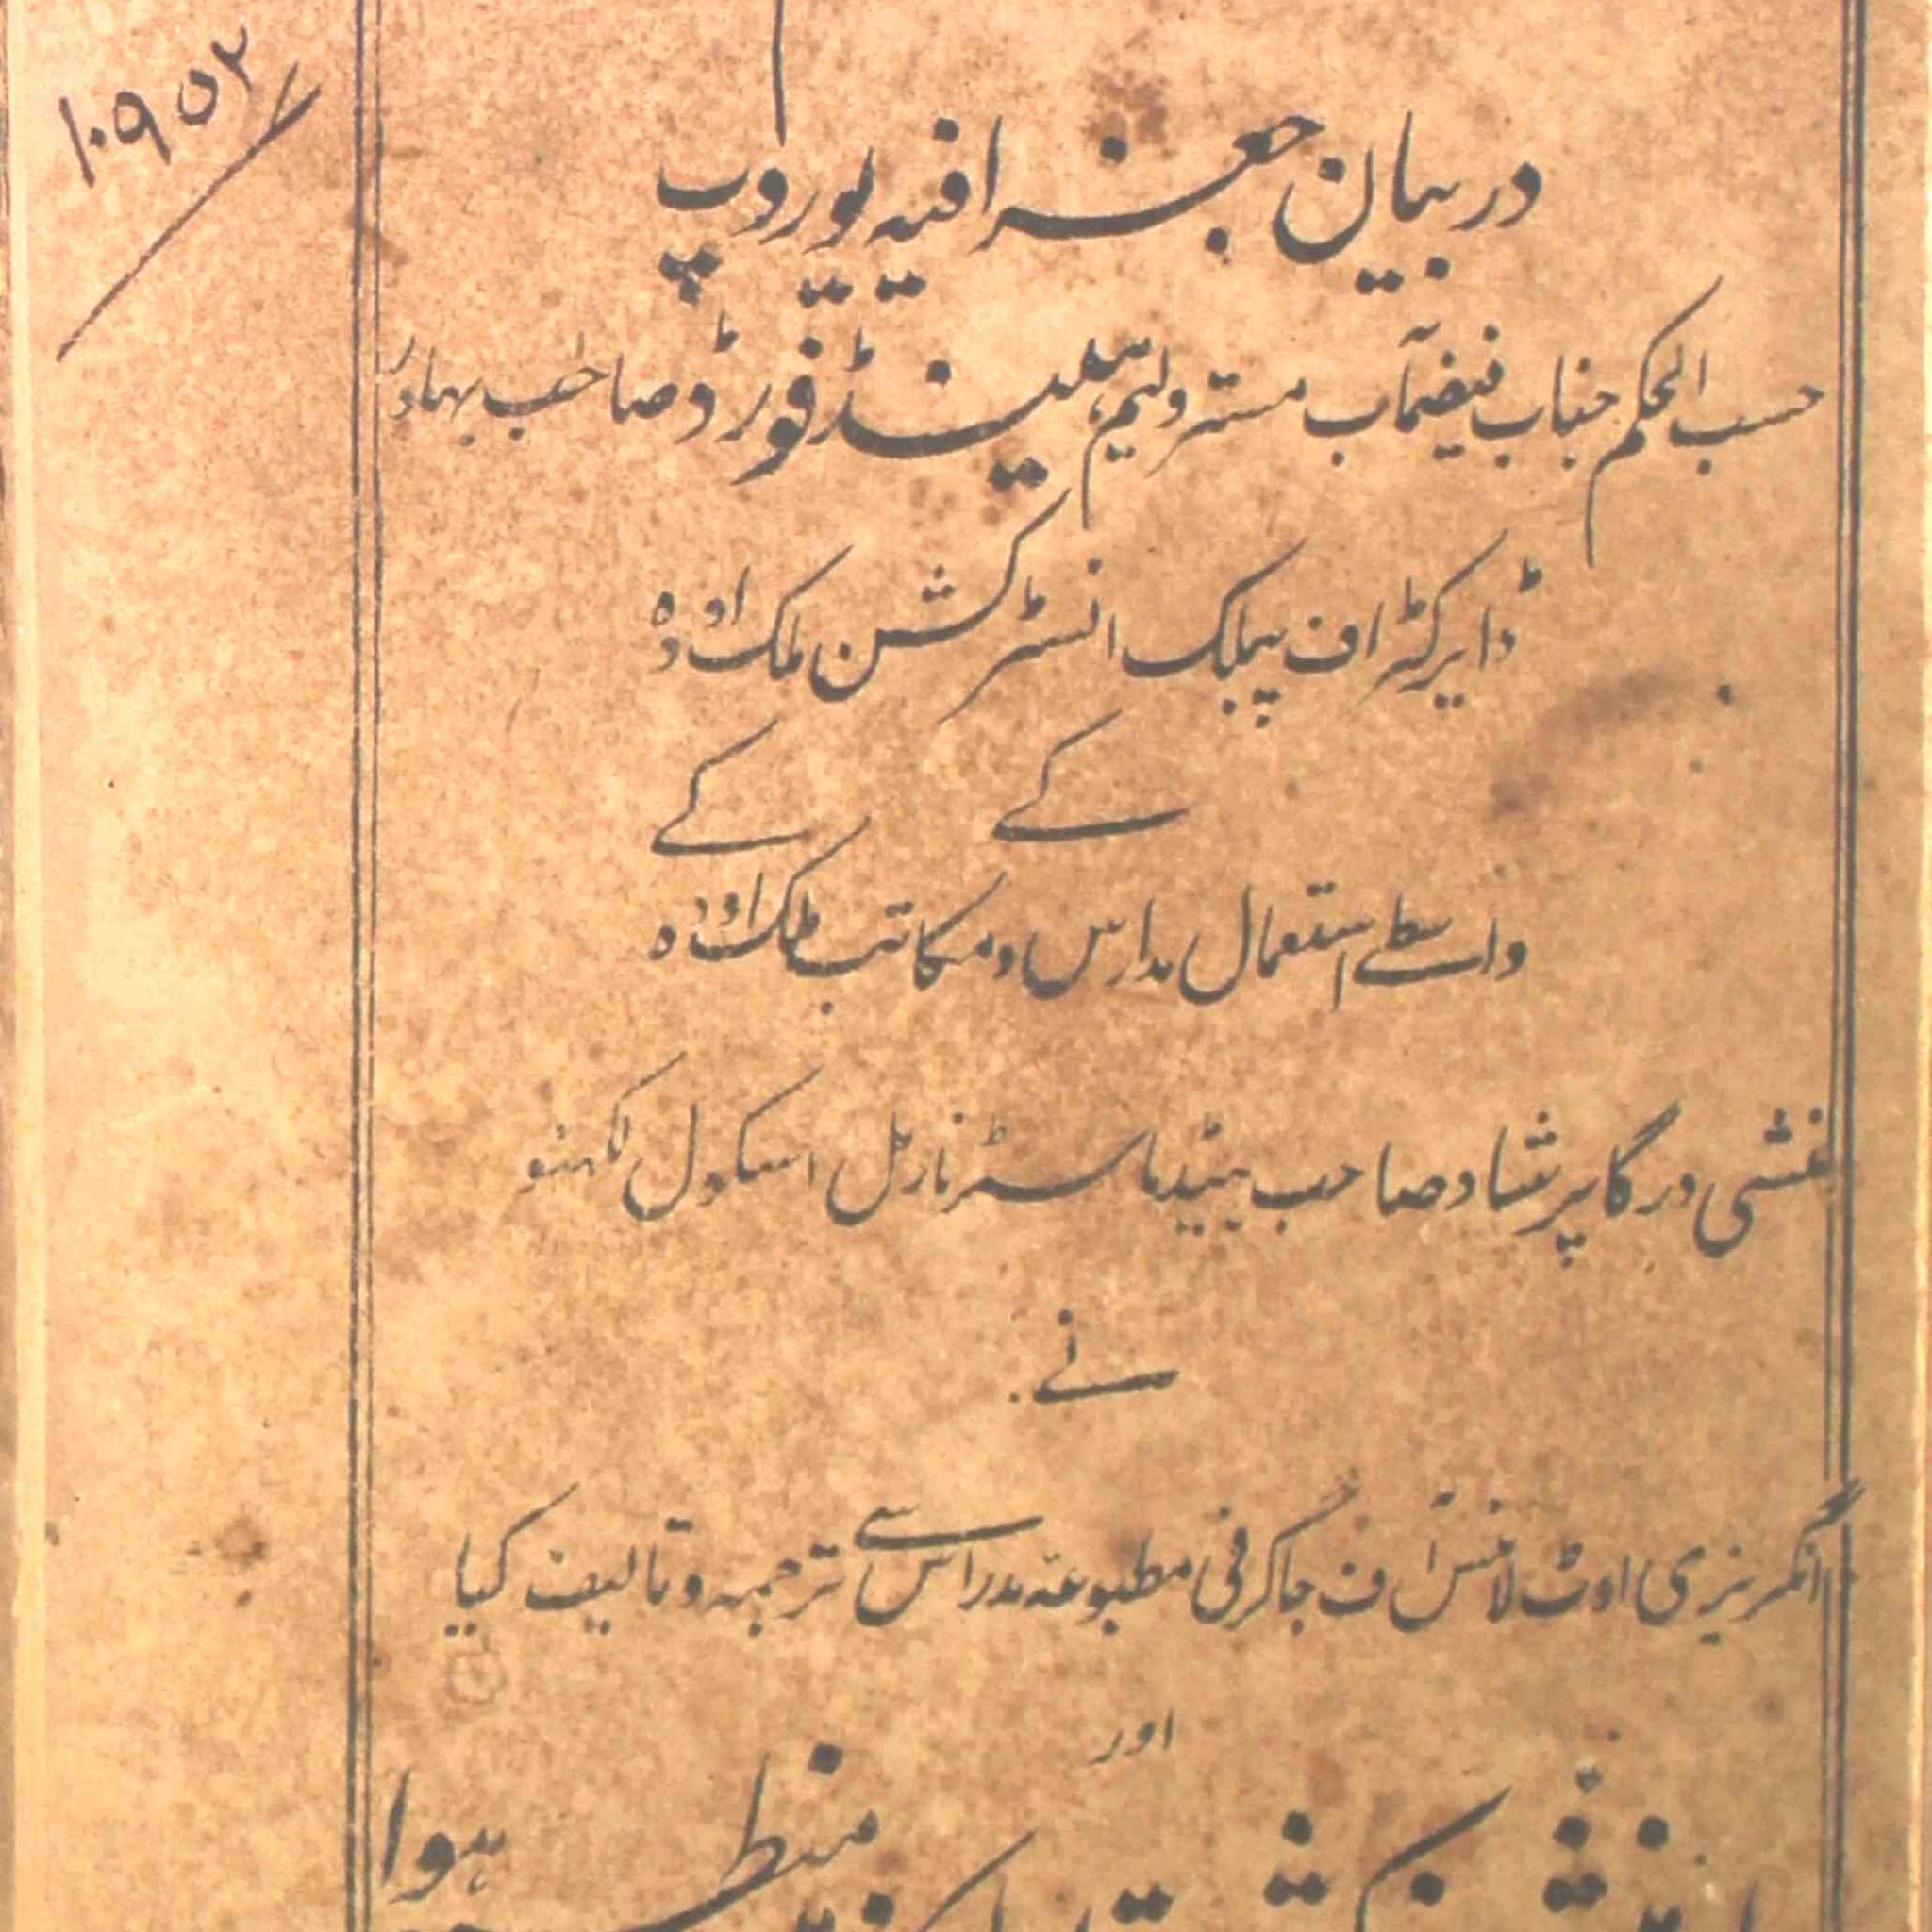 ۱۰۹۵۲
در بیان جغرافیہ یوروپ
حسب الحکم جناب فیضمآب مستر ولیم ہینڈفورڈ صاحب بہادر
ڈایرکٹر اف پبلک انسٹرکشن ملک اودہ
کے کے
واسطے استعمال مدارس و مکاتب ملک اودہ
منشی درگا پرشاد صاحب ہیڈ ماسٹر نارمل اسکول لکہنؤ
نے
انگریزی اوٹ لائنس آف جاگرفی مطبوعہ مدراس سے ترجمہ و تالیف کیا
اور
ہوا